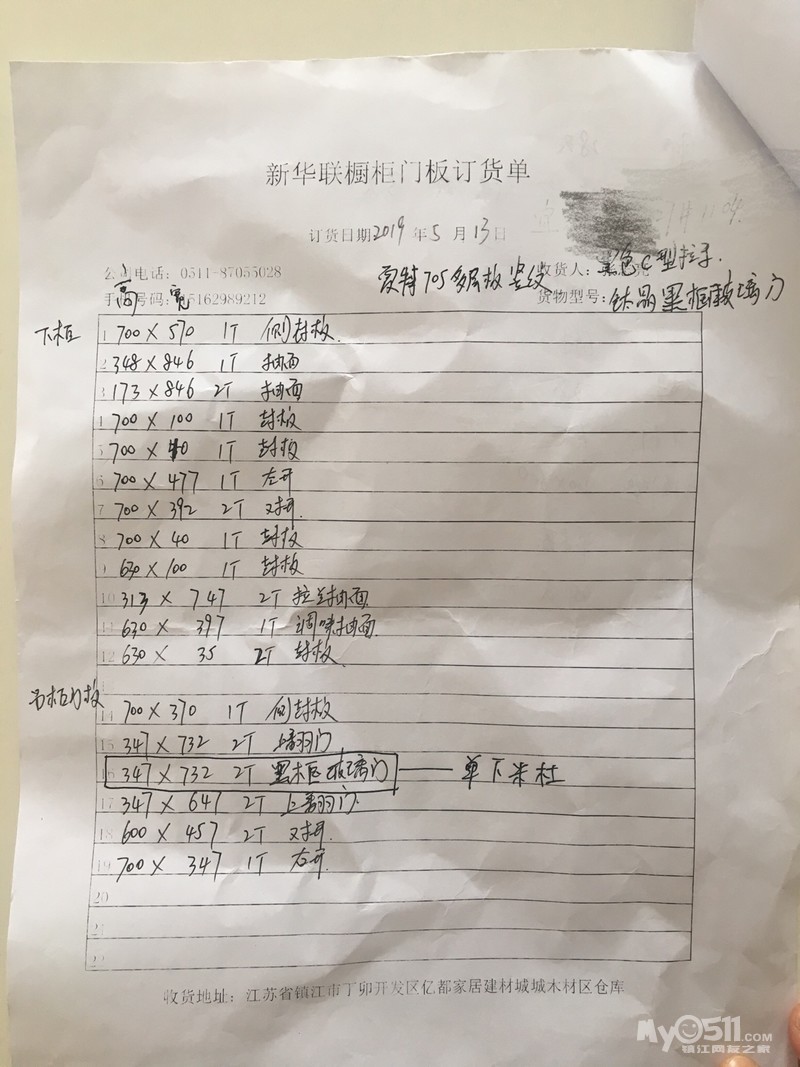 新华联橱柜门板订货单
订货日期2019年5月13日
公司电话：0511-87055028 收货人：黑色C型拉手.
高 宽 705多层板 竖纹
手机号码：15162989212 货物型号：钛晶黑框玻璃门
下柜 1 700×570 1T 侧封板.
2 348×846 1T 抽面
3 173×846 2T 抽面
4 700×100 1T 封板
5 700× 1T 封板
6 700×477 1T 左开
7 700×392 2T 对开.
8 700×40 1T 封板
9 630×100 1T 封板
10 313×747 2T 拉兰抽面
11 630×397 1T 调味抽面
12 630×35 2T 封板
13
吊柜门板 14 700×370 1T 侧封板
15 347×732 2T 上翻门
16 347×732 2T 黑框玻璃门 —— 单下米杜
17 347×647 2T 上翻门
18 600×457 2T 对开
19 700×347 1T 右开
20
21
22
收货地址：江苏省镇江市丁卯开发区亿都家居建材城城木材区仓库
My0511.COM
镇江网友之家